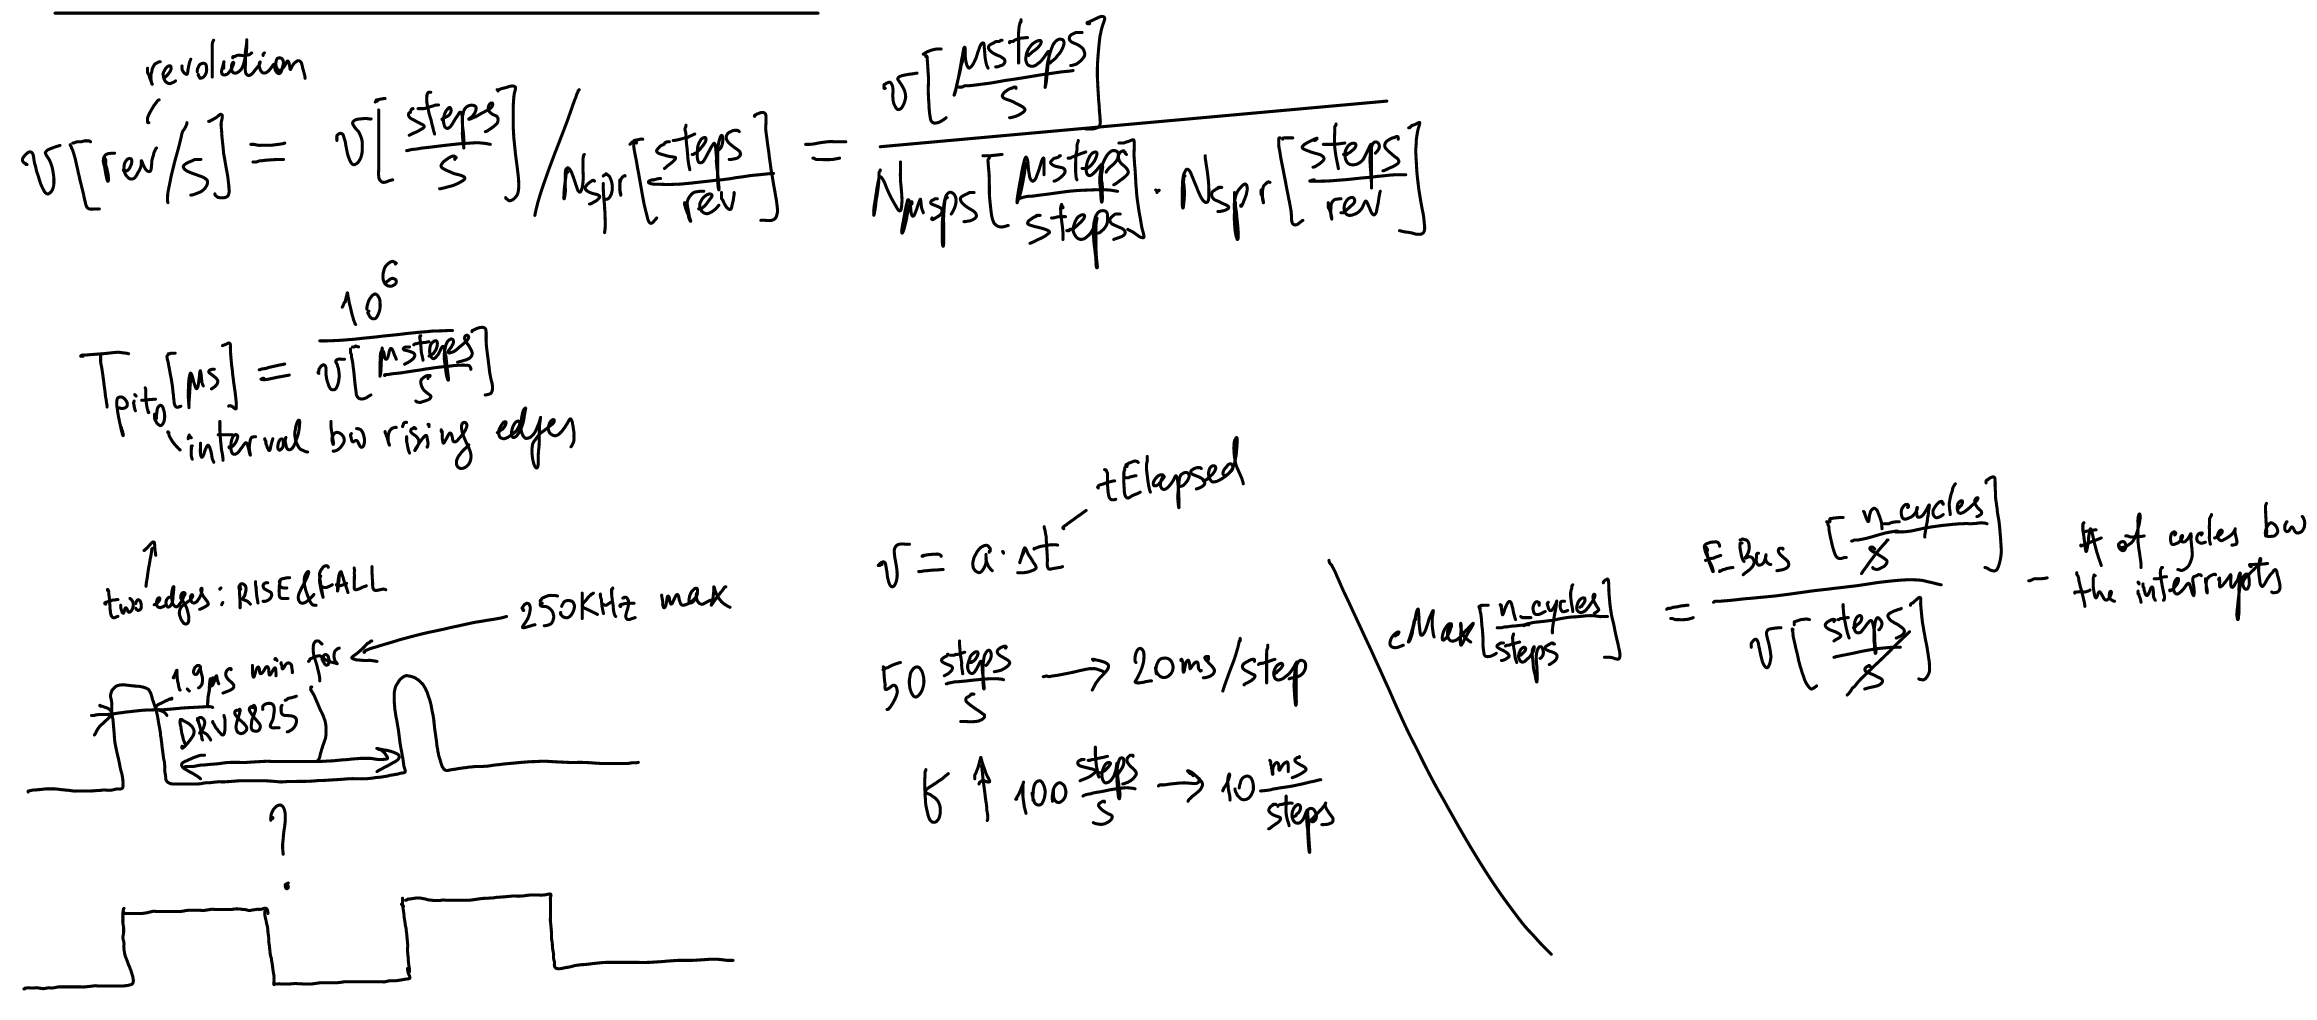 revolution
v[rev/s] = v[steps/s] / Nspr[steps/rev] = v[μsteps/s] / Nμsps[μsteps/steps] · Nspr[steps/rev]
Tpit0[μs] = 10^6 / v[μsteps/s]
interval bw rising edges
two edges: RISE&FALL
250KHz max
1.9μs min for
DRV8825
?
tElapsed
v = a·Δt
50 steps/s → 20ms/step
↑ 100 steps/s → 10 ms/steps
cMax[n_cycles/steps] = F_Bus [n_cycles/s] / v[steps/s] – # of cycles bw
the interrupts